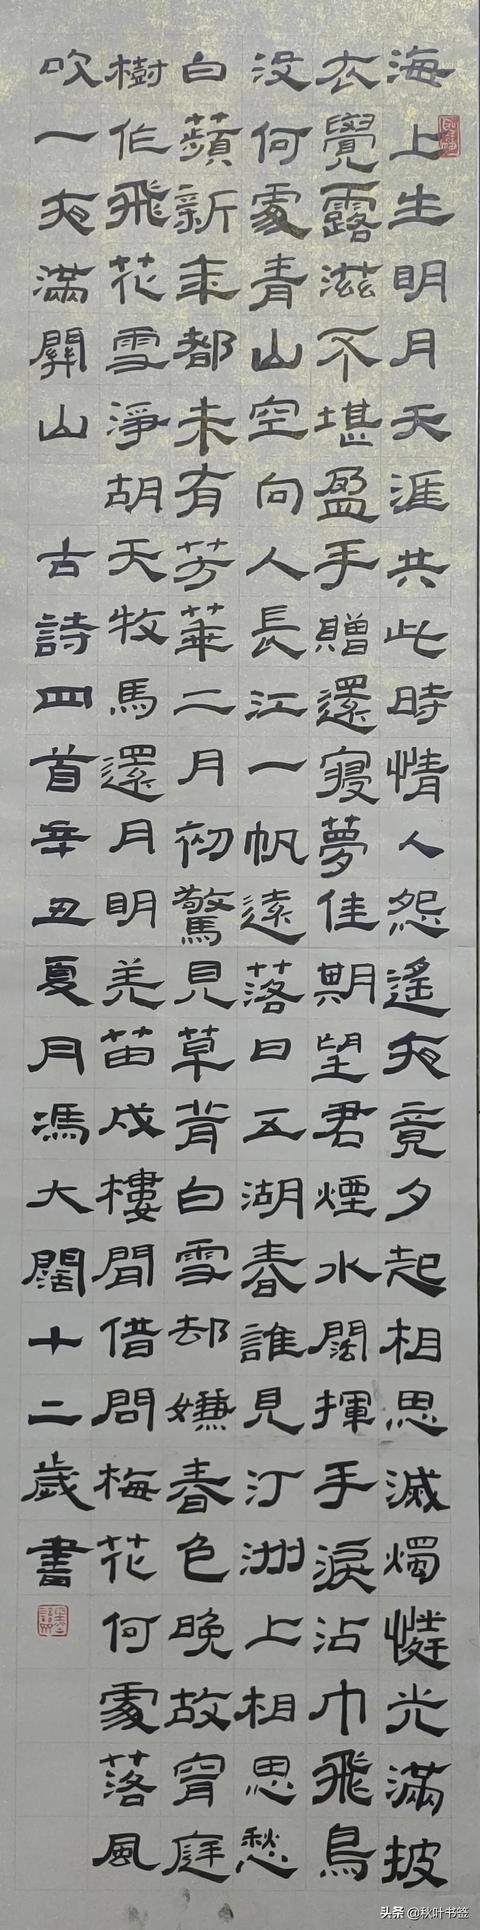 海上生明月天涯共此時情人怨遙夜竟夕起相思滅燭憐光滿披
衣覺露滋不堪盈手贈還寢夢佳期望君煙水闊揮手淚沾巾飛鳥
没何處青山空向人長江一帆遠落日五湖春誰見汀洲上相思愁
白蘋新年都未有芳華二月初驚見草芽白雪却嫌春色晚故穿庭
樹作飛花雪淨胡天牧馬還月明羌笛戍樓間借問梅花何處落風
吹一夜滿關山 古詩四首辛丑夏月馮大闊十二歲書
头条 @秋叶书签